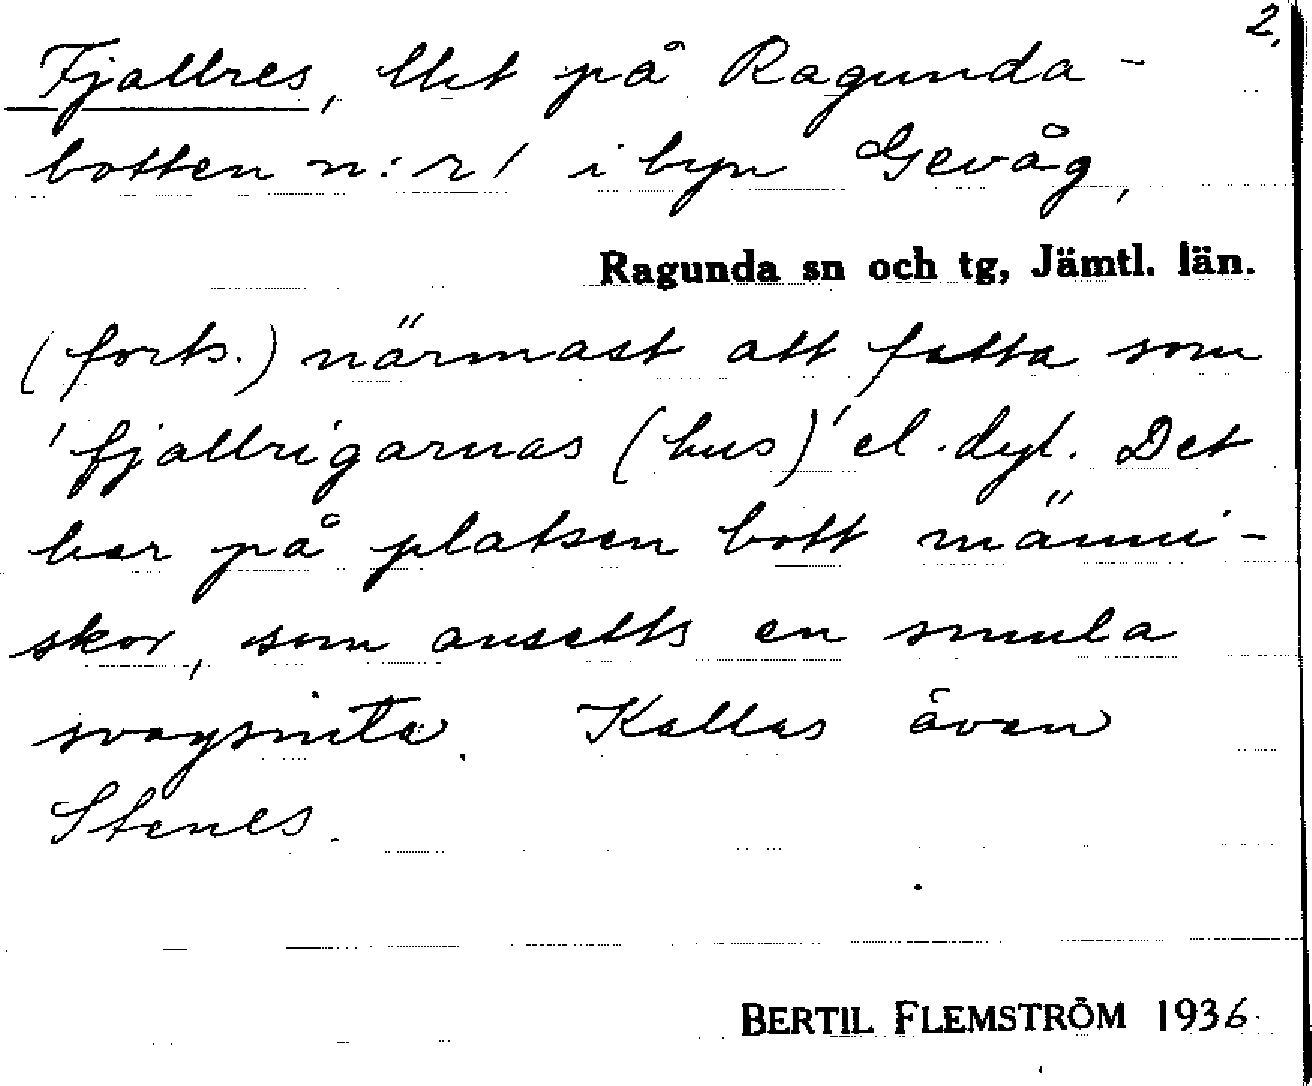 2.
Fjallres, lht på Ragunda-
botten n:r 1 i byn Gevåg,
Ragunda sn och tg, Jämtl. län.
(forts.) närmast att fatta som
'fjallrigarnas (hus)' el. dyl. Det
har på platsen bott männi-
skor, som ansetts en smula
svagsinta. Kallas även
Stenes.
BERTIL FLEMSTRÖM 1936